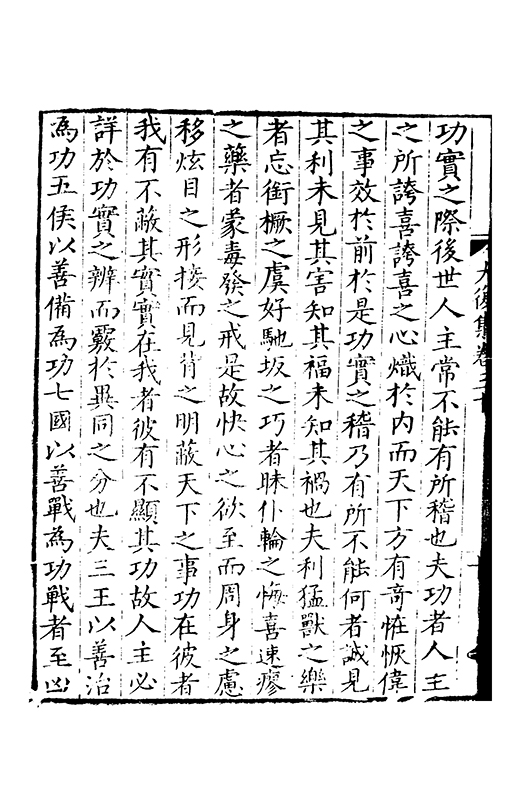 功實之際後世人主常不能有所稽也夫功者人主
之所誇喜誇喜之心熾於内而天下方有奇恠恢偉
之事效於前於是功實之稽乃有所不能何者誠見
其利未見其害知其福未知其禍也夫利猛獸之樂
者忘銜橛之虞好馳坂之巧者昧仆輪之悔喜速瘳
之藥者蒙毒發之戒是故快心之欲至而周身之慮
移炫目之形接而見背之明蔽天下之事功在彼者
我有不蔽其實實在我者彼有不顯其功故人主必
詳於功實之辨而覈於異同之分也夫三王以善治
為功五侯以善備為功七國以善戰為功戰者至凶
大復集卷三十